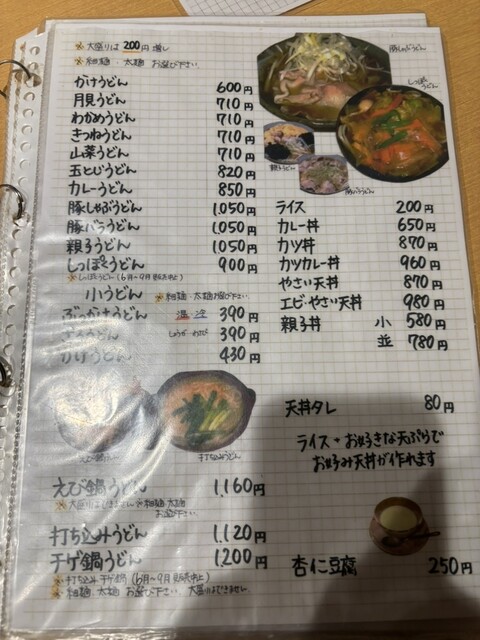 ※大盛りは200円増し
※細麺・太麺 お選び下さい。
かけうどん 600円
月見うどん 710円
わかめうどん 710円
きつねうどん 710円
山菜うどん 710円
玉とじうどん 820円
カレーうどん 850円
豚しゃぶうどん 1,050円
豚バラうどん 1,050円
親子うどん 1,050円
しっぽくうどん 900円
※しっぽくうどん(6月〜9月
小うどん ※細麺・太麺お選び下さい。
ぶっかけうどん 温 冷 390円
ざるうどん しょうが・わさび 390円
かけうどん 430円
豚しゃぶうどん
しっぽくうどん
親子うどん
豚バラうどん
ライス 200円
カレー丼 650円
カツ丼 870円
カツカレー丼 960円
やさい天丼 870円
エビ・やさい天丼 980円
親子丼 小 580円
並 780円
えび鍋うどん
打ち込みうどん
えび鍋うどん 1,160円
※大盛りは ※細麺・太麺
お選び下さい。
打ち込みうどん 1,120円
チゲ鍋うどん 1,200円
※打ち込み チゲ鍋 (6月〜9月
※細麺 太麺 お選び下さい。大盛りはできません。
天丼タレ 80円
ライス+お好きな天ぷらで
お好み天丼が作れます
杏仁豆腐 250円